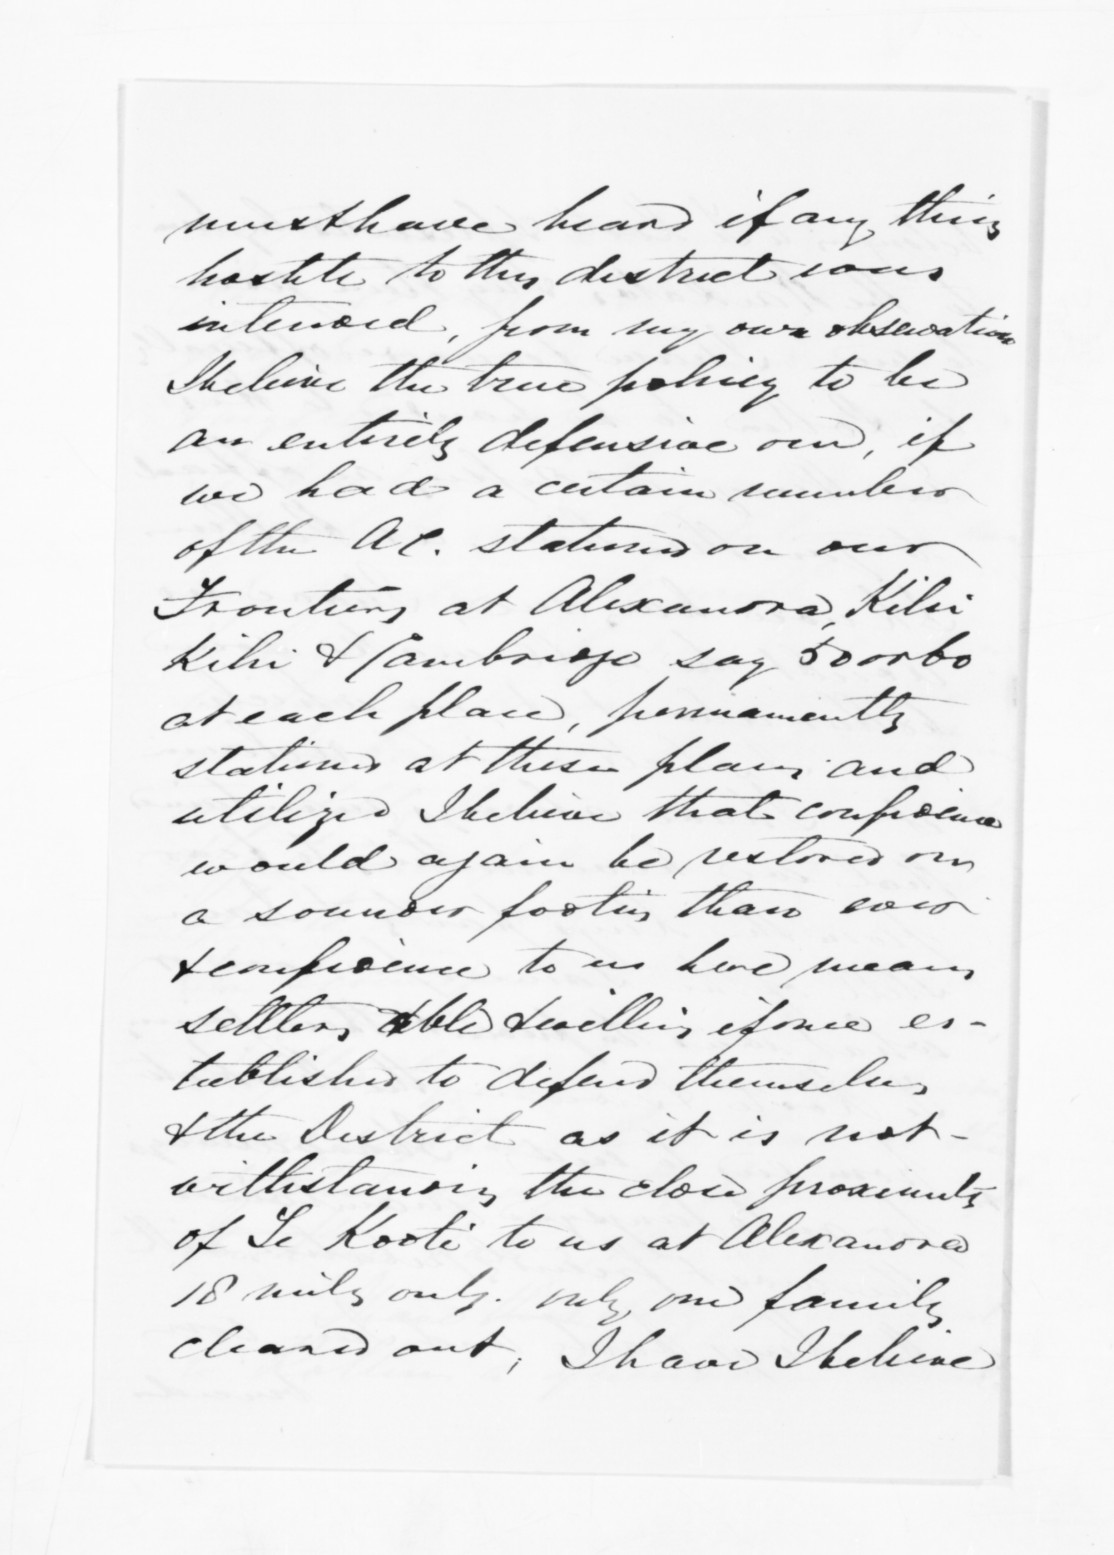 must have heard if any thing
hostile to this district was
intended, from my own observation
I believe the true policy to be
an entirely defensive one, if
we had a certain number
of the A C. stationed on our
Frontiers at Alexandra, Kihi
Kihi & Cambridge say 50 or 60
at each place, permanently
stationed at these places and
utilized I believe that confidence
would again be restored on
a sounder footing than ever
& confidence to us here means
settlers able & willing if once es-
tablished to defend themselves
& the District as it is not-
withstanding the close proximity
of Te Kooti to us at Alexandra
18 miles only. only one family
cleared out, I have I believe